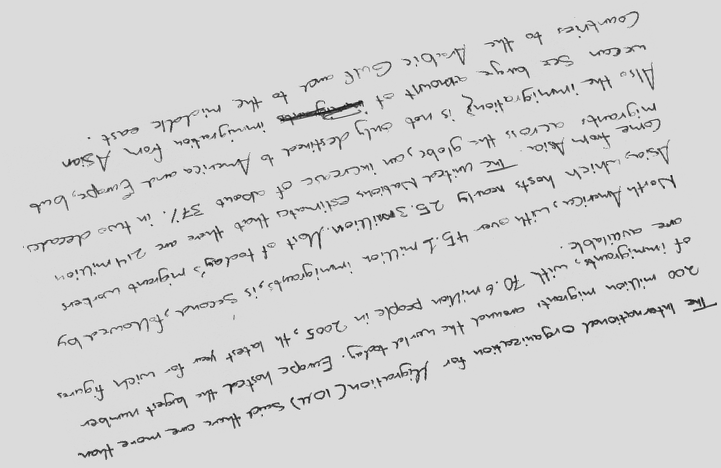 The International Organization for Migration (IOM) said there are more than
200 million migrants around the world today. Europe hosted the largest number
of immigrants, with 70.6 million people in 2005, th latest year for wich figures
are available.
North America, with over 45.1 million immigrants, is second, followed by
Asia, which hosts nearly 25.3 million. Most of today's migrant workers
come from Asia. The united Nations estimates that there are 214 million
migrants across the globe, an increase of about 37% in two decades.
Also the immigration is not only destined to America and Europe, but
we can see large amount of immigration from Asian
Countries to the Arabic Gulf and to the middle east.